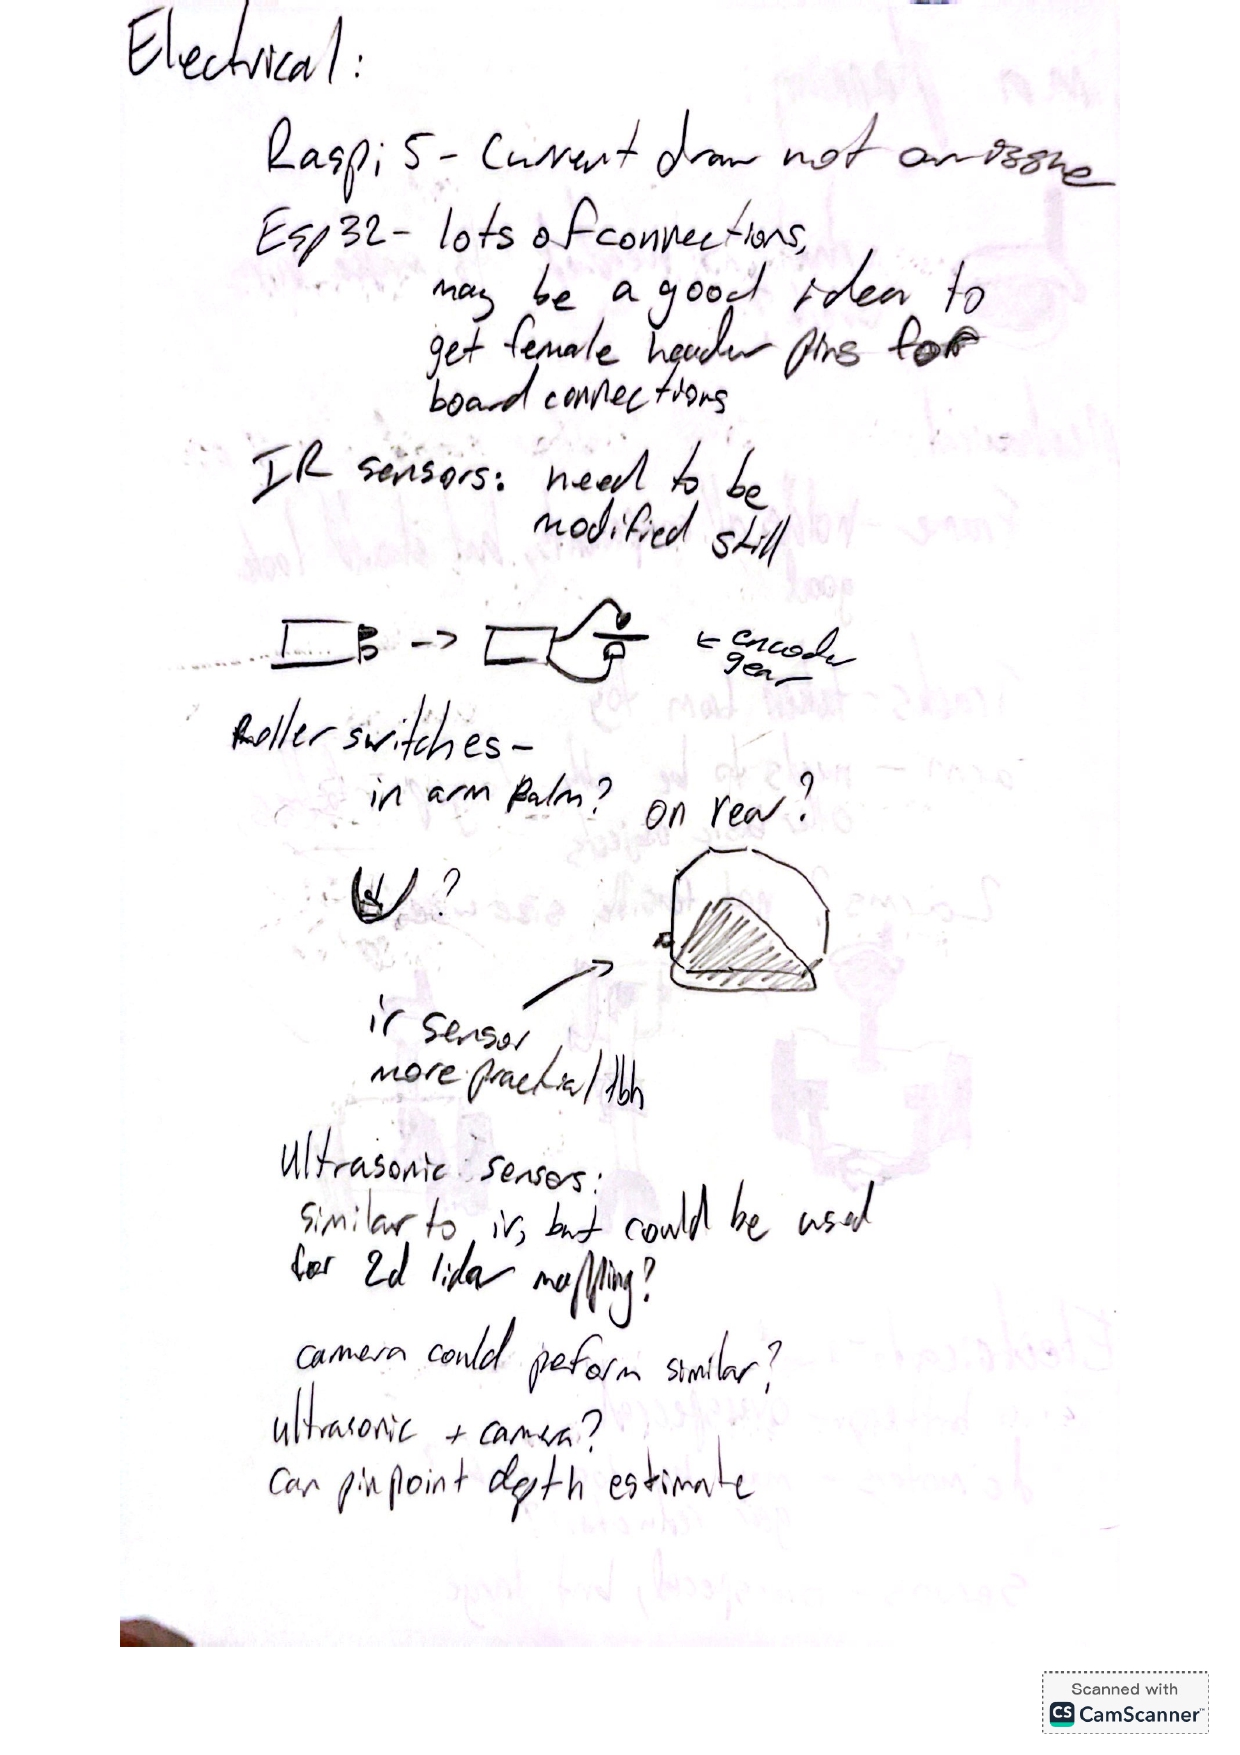 Electrical:
Raspi 5 - Current draw not an issue
Esp32 - lots of connections,
may be a good idea to
get female header pins for
board connections
IR sensors: need to be
modified still
-> ← encoder
gear
Roller switches -
in arm palm? on rear?
?
ir sensor
more practical tbh
Ultrasonic sensors:
similar to ir, but could be used
for 2d lidar mapping?
camera could peform similar?
ultrasonic + camera?
can pinpoint depth estimate
Scanned with
CS CamScanner